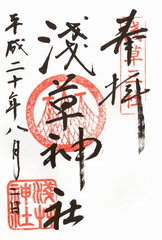 奉拝
浅草
淺草神社
平成二十年八月二日
淺草神社